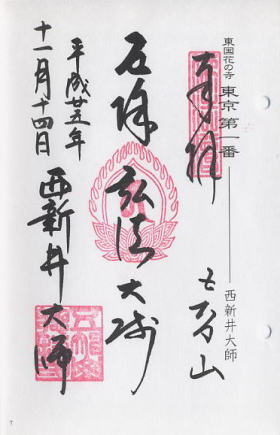 東国花の寺 東京第一番 西新井大師
奉拝 五智山
厄除 弘法大師
平成廿五年
十一月十四日 西新井大師
7